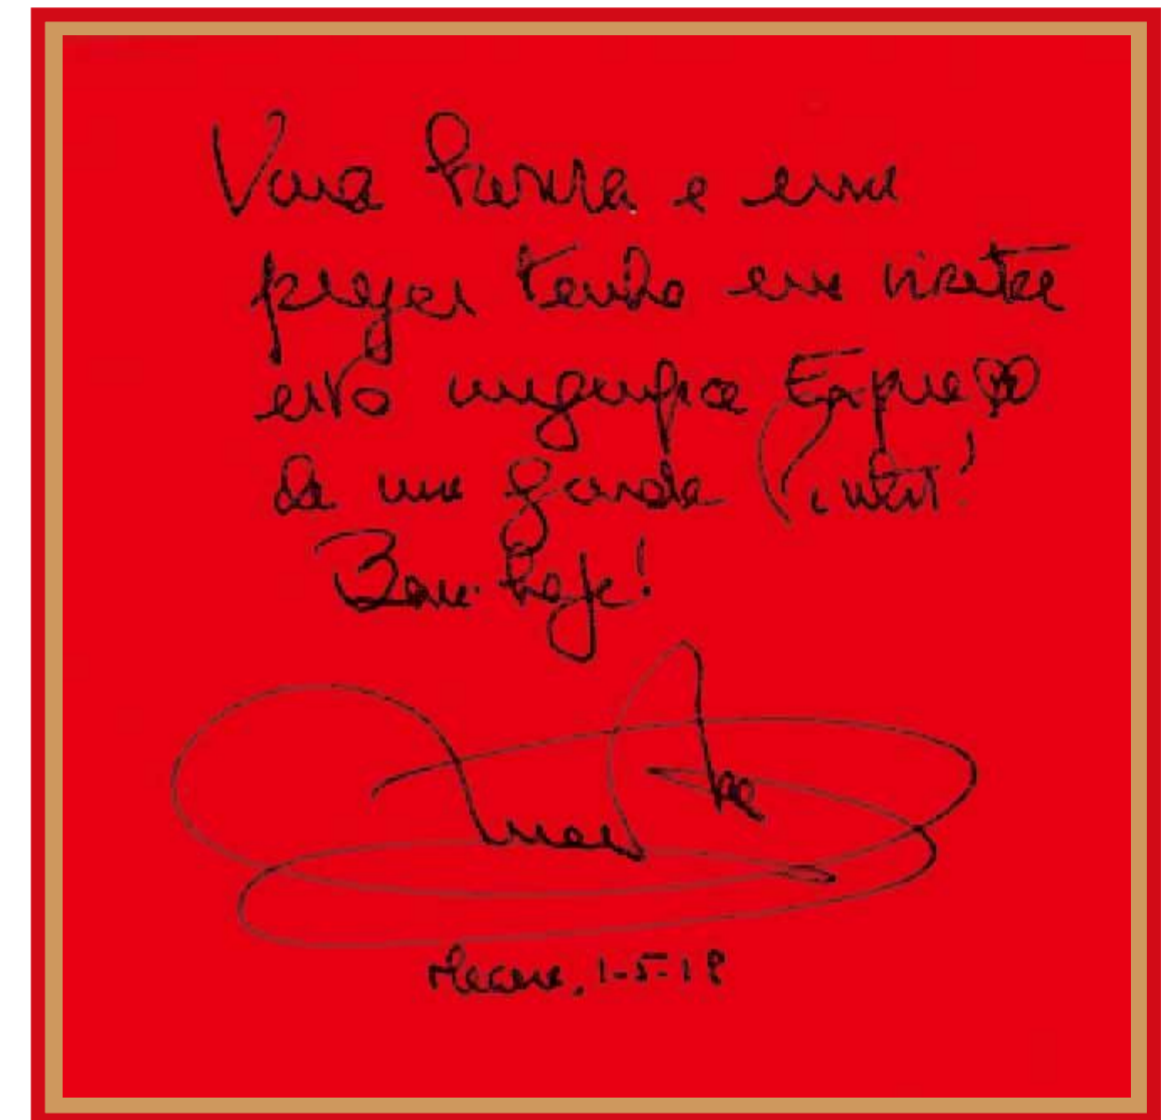 honra e
prazer tenho em visitar
esta magnífica Expo
de um grande Pintor!
Bem haja!
Macau, 1-5-18